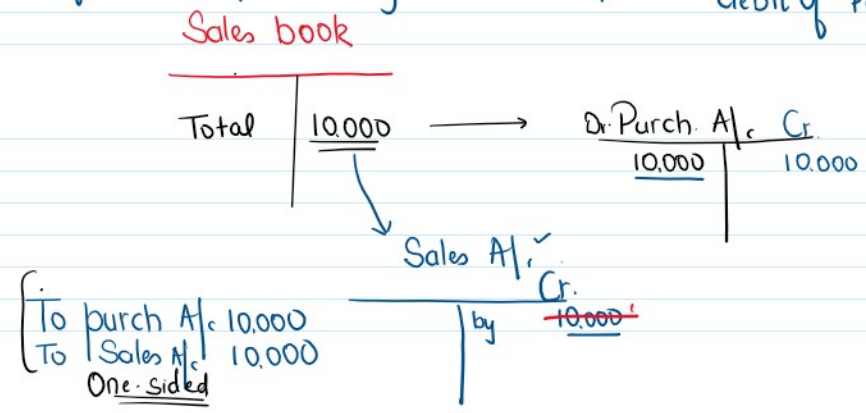 debit of
Sales book
Total 10.000
Dr. Purch. A/c Cr.
10,000 10.000
Sales A/c
Cr.
To purch A/c 10,000
by 10.000
To Sales A/c 10,000
One-sided